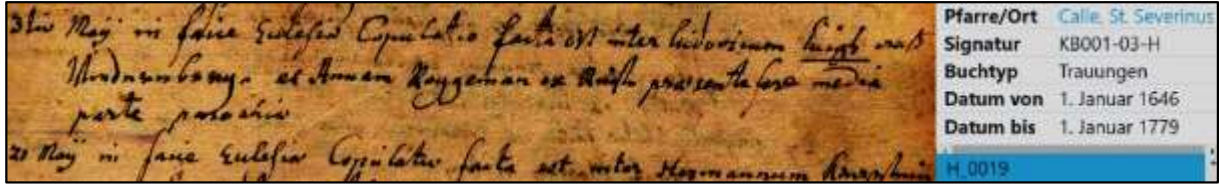 3tiu Maÿ in facie Ecclesia Copulatio facta est inter Ludovicum Luigs
et Annam Roggeman ex præsente fere media
parte parochia
21 Maÿ in facie Ecclesia Copulatio facta est inter Hermannum
Pfarre/Ort Calle, St. Severinus
Signatur KB001-03-H
Buchtyp Trauungen
Datum von 1. Januar 1646
Datum bis 1. Januar 1779
H_0019